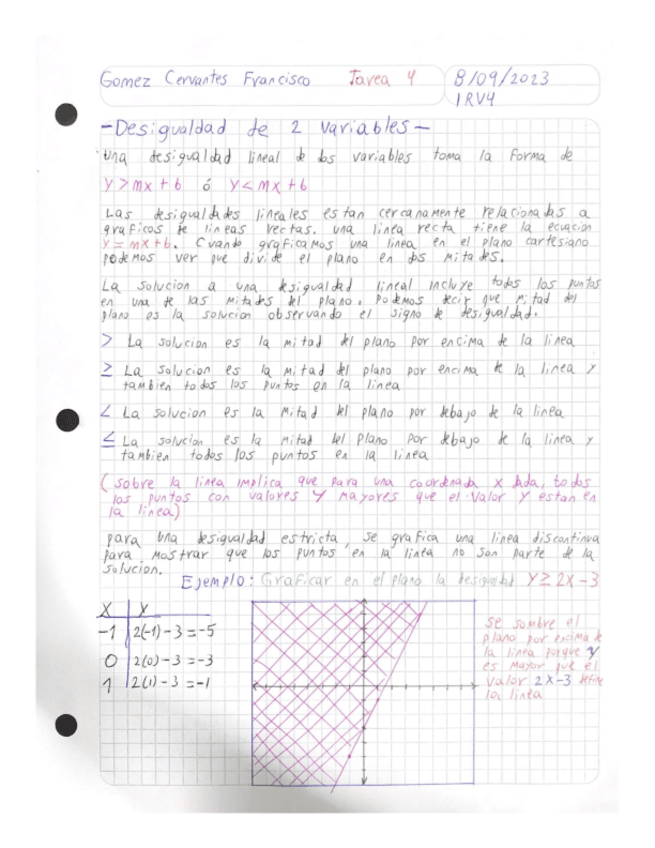 Gomez Cervantes Francisco Tarea 4 8/09/2023
1RV4
-Desigualdad de 2 Variables-
Una desigualdad lineal de dos variables toma la forma de
y > mx + b ó y < mx + b
Las desigualdades lineales estan cercanamente relacionadas a
graficos de lineas rectas. una linea recta tiene la ecuacion
y = mx + b. Cuando graficamos una linea en el plano cartesiano
podemos ver que divide el plano en dos mitades.
La solucion a una desigualdad lineal incluye todos los puntos
en una de las mitades del plano. Podemos decir que mitad del
plano es la solucion observando el signo de desigualdad.
> La solucion es la mitad del plano por encima de la linea
≥ La solucion es la mitad del plano por encima de la linea y
tambien todos los puntos en la linea
< La solucion es la mitad del plano por debajo de la linea
≤ La solucion es la mitad del plano por debajo de la linea y
tambien todos los puntos en la linea
(sobre la linea implica que para una coordenada x dada, todos
los puntos con valores y mayores que el valor y estan en
la linea)
para una desigualdad estricta, se grafica una linea discontinua
para mostrar que los puntos en la linea no son parte de la
solucion.
Ejemplo: Graficar en el plano la desigualdad y ≥ 2x - 3
x y
-1 2(-1) - 3 = -5
0 2(0) - 3 = -3
1 2(1) - 3 = -1
se sombre el
plano por encima de
la linea porque y
es mayor que el
valor 2x-3 define
la linea